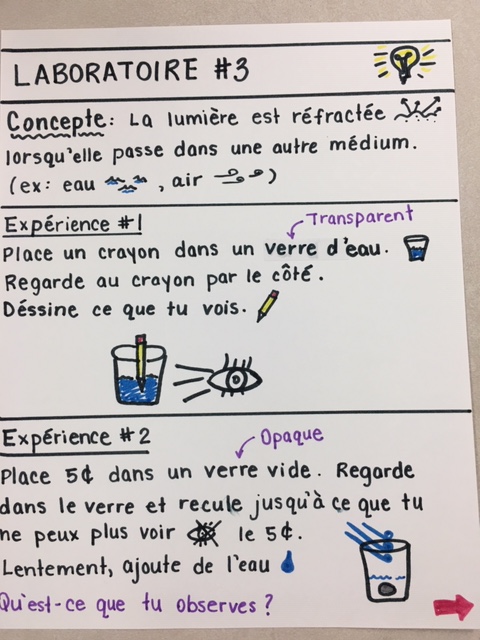 LABORATOIRE #3
Concepte: La lumière est réfractée
lorsqu'elle passe dans une autre médium.
(ex: eau , air )
Expérience #1
Transparent
Place un crayon dans un verre d'eau.
Regarde au crayon par le côté.
Déssine ce que tu vois.
Expérience #2
Opaque
Place 5¢ dans un verre vide. Regarde
dans le verre et recule jusqu'à ce que tu
ne peux plus voir le 5¢.
Lentement, ajoute de l'eau
Qu'est-ce que tu observes?